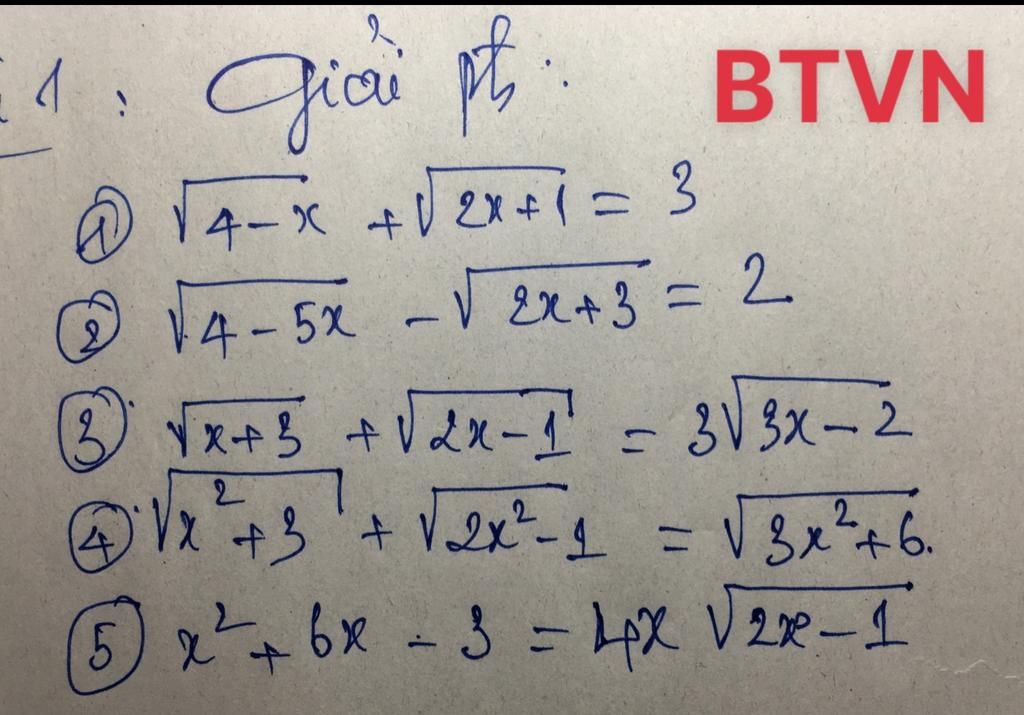 1 : Giải pt : BTVN
① √(4-x) + √(2x+1) = 3
② √(4-5x) - √(2x+3) = 2
③ √(x+3) + √(2x-1) = 3√(3x-2)
④ √(x²+3) + √(2x²-1) = √(3x²+6).
⑤ x² + 6x - 3 = 4x √(2x-1)